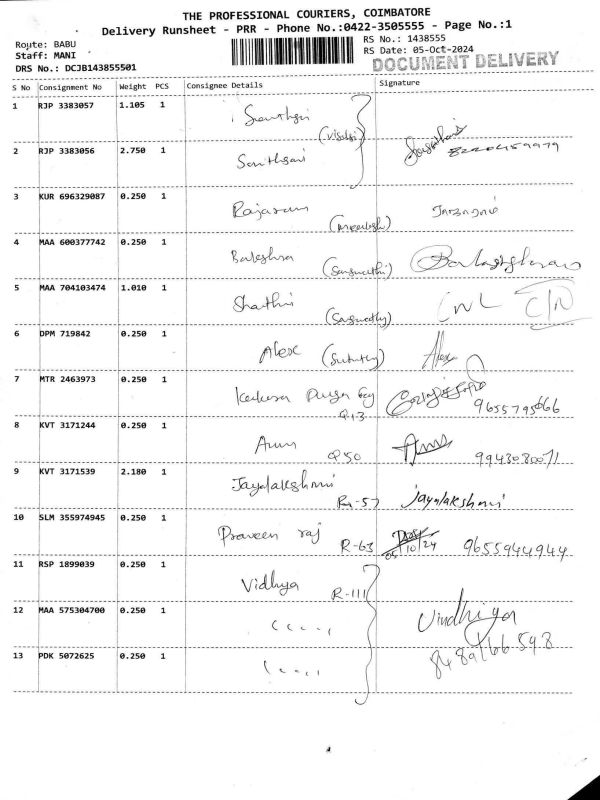 THE PROFESSIONAL COURIERS, COIMBATORE
Delivery Runsheet - PRR - Phone No.:0422-3505555 - Page No.:1
Route: BABU
RS No.: 1438555
Staff: MANI
RS Date: 05-Oct-2024
DRS No.: DCJB143855501
DOCUMENT DELIVERY
S No Consignment No Weight PCS Consignee Details Signature
1 RJP 3383057 1.105 1
2 RJP 3383056 2.750 1
3 KUR 696329087 0.250 1 Rajaram
4 MAA 600377742 0.250 1
5 MAA 704103474 1.010 1
6 DPM 719842 0.250 1 Alex Alex
7 MTR 2463973 0.250 1
Q13 9655795666
8 KVT 3171244 0.250 1 Arun Q50 9943080071
9 KVT 3171539 2.180 1 Jayalakshmi R-57 jayalakshmi
10 SLM 355974945 0.250 1 Praveen raj R-63 05/10/24 9655944944
11 RSP 1899039 0.250 1 Vidhya R-111
12 MAA 575304700 0.250 1 Vindhiya
13 PDK 5072625 0.250 1 8489166598